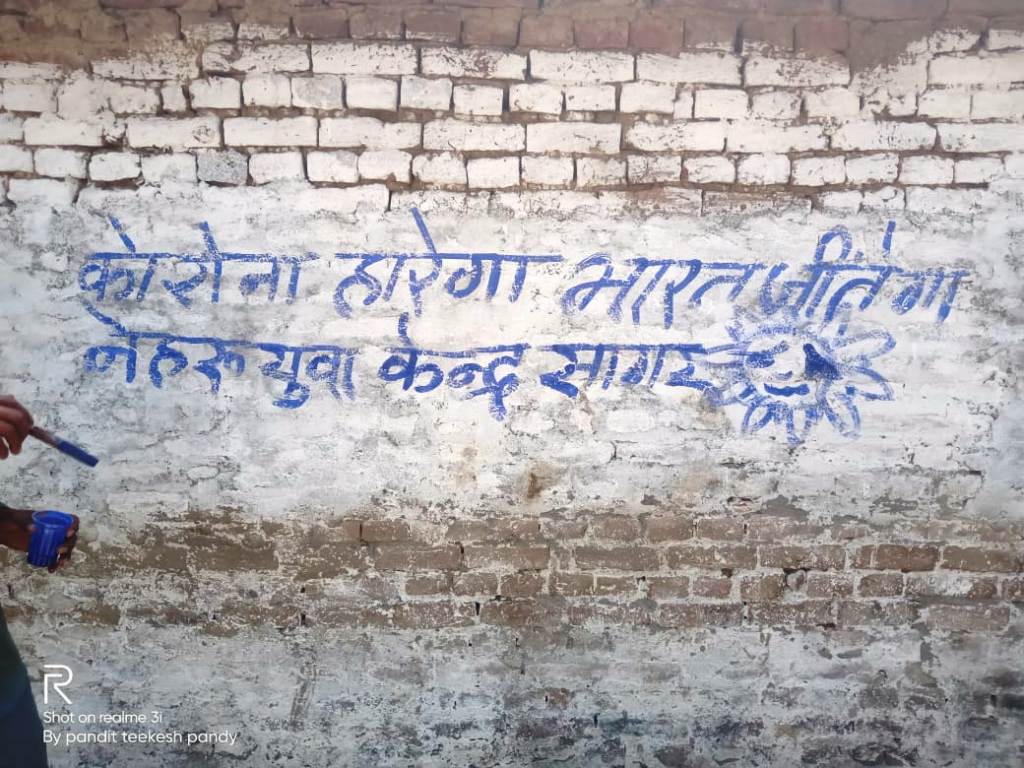 कोरोना हारेगा भारत जीतेगा
नेहरू युवा केन्द्र सागर
R
Shot on realme 3i
By pandit teekesh pandy